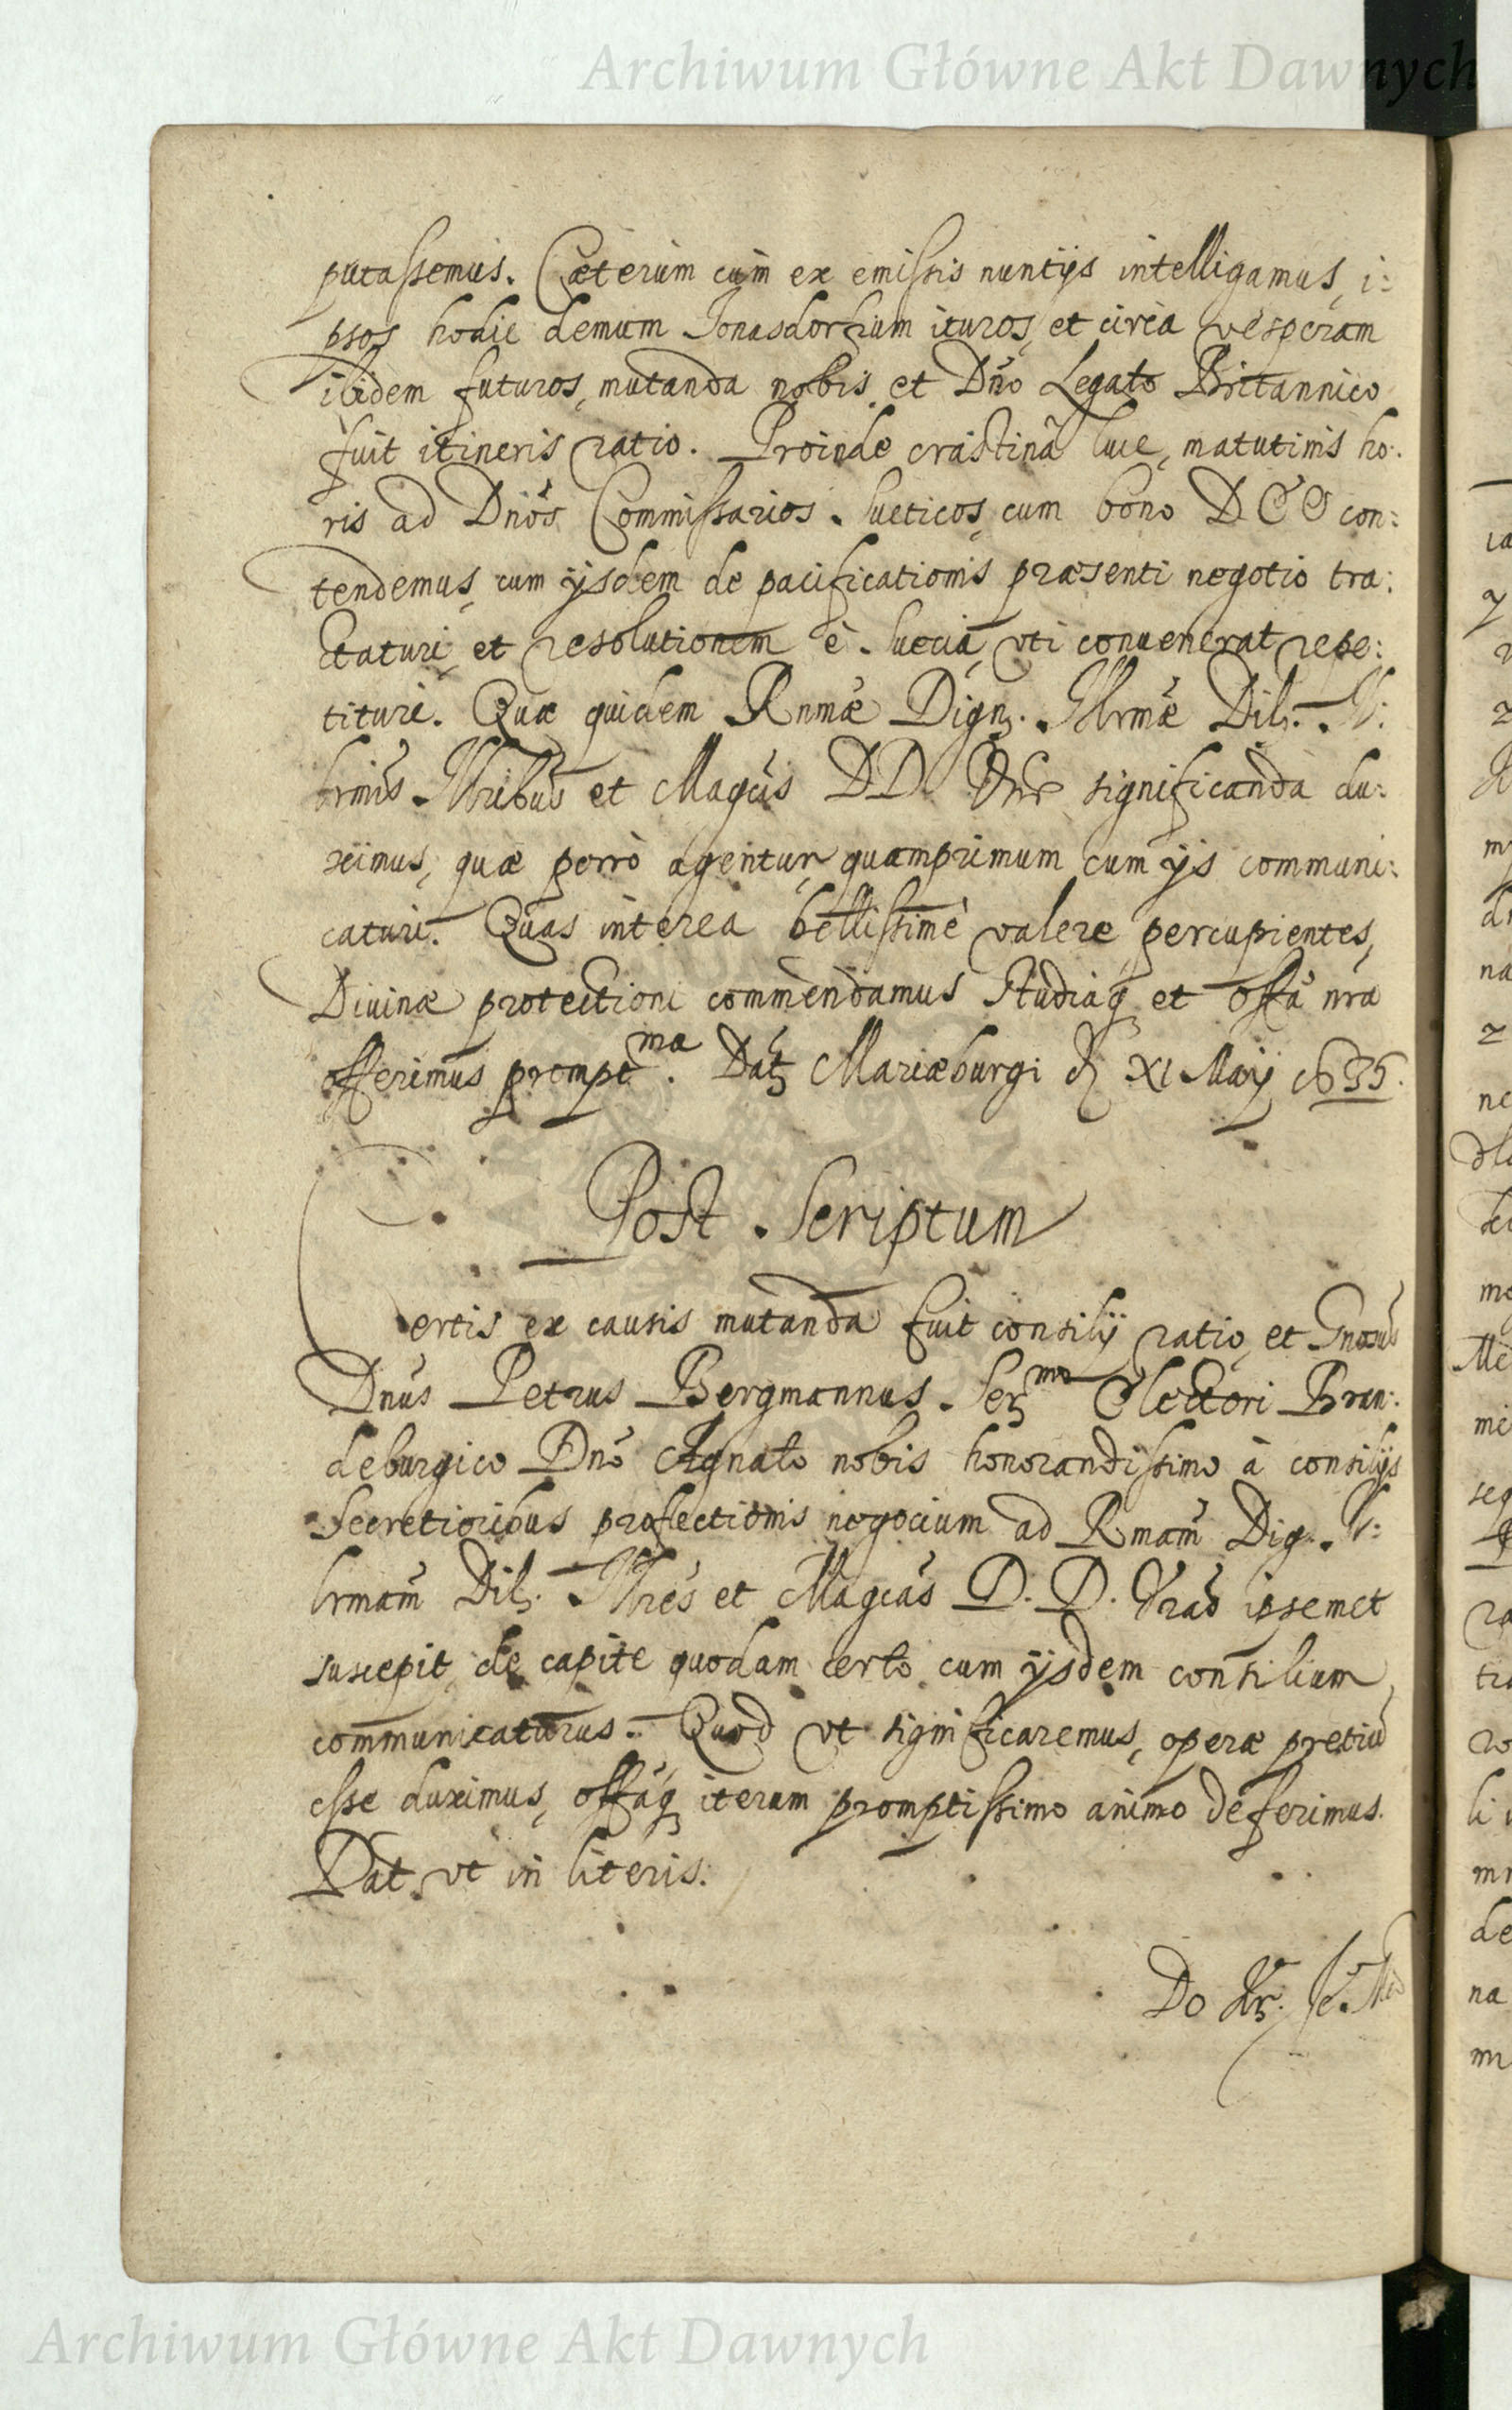 Archiwum Główne Akt Dawnych
putassemus. Cæterùm cùm ex emissis nuntijs intelligamus, i:
psos hodie demum Jonasdorfium ituros, et circa vesperam
ibidem futuros, mutanda nobis et Dno Legato Britannico
fuit itineris ratio. Proinde crastinâ luce, matutinis ho:
ris ad Dnos Commissarios Sueticos, cum bono DEO con:
tendemus, cum ijsdem de pacificationis præsenti negotio tra:
ctaturi, et resolutionem è Sueciâ, vti conuenerat repe:
tituri. Quæ quidem Rnmæ Dign. Illrmæ Dil.
Illribus et Magcis DD. Vris significanda du:
ximus, quæ porrò agentur, quamprimum cum ijs communi:
caturi. Quas interea bellissimè valere percupientes,
Diuinæ protectioni commendamus Studiaq et offa nra
offerimus prompt ma. Dat Mariæburgi d XI Maij 1635.
Post Scriptum
Certis ex causis mutanda fuit consilij ratio, et Gnosus
Dnus Petrus Bergmannus Ser mo Electori Bran:
deburgico Dno Agnato nobis honorandissimo à consilijs
Secretioribus profectionis negocium ad Rmam Dig. Il:
lrmam Dil. Illres et Magcas D. D. Vras ipsemet
suscepit, de capite quodam certo cum ijsdem consilium
communicaturus. Quod vt significaremus, operæ pretiũ
esse duximus, offaq iterum promptissimo animo deferimus.
Dat. vt in literis.
Do Kr. Je. Mci
Archiwum Główne Akt Dawnych